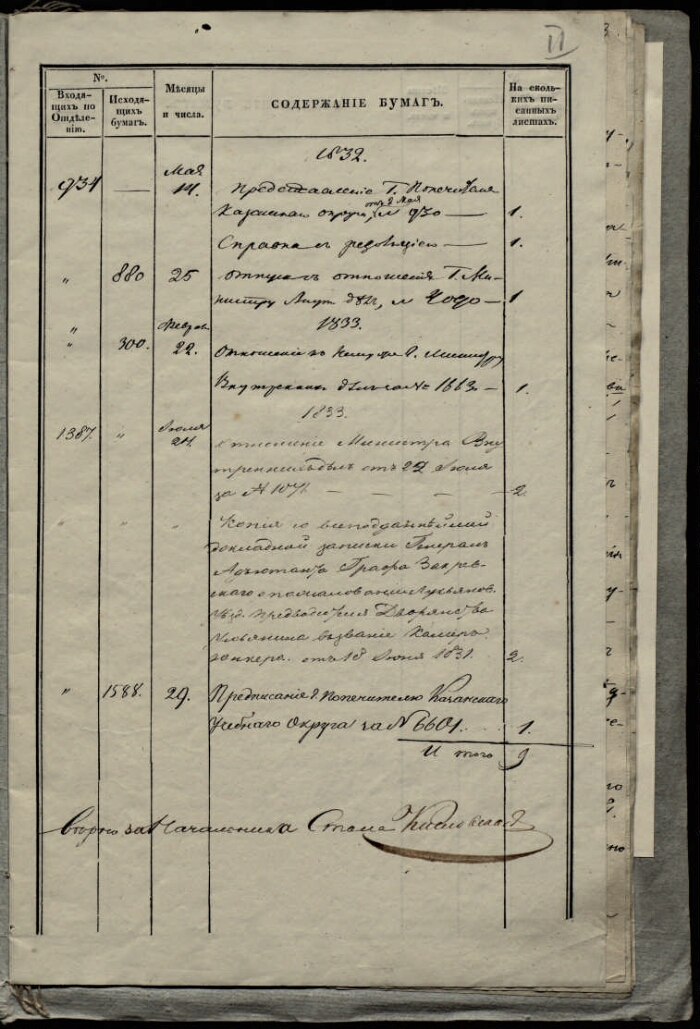 II
№.
Входящихъ по Отдѣленію.
Исходящихъ бумагъ.
Мѣсяцы и числа.
СОДЕРЖАНІЕ БУМАГЪ.
На сколькихъ писанныхъ листахъ.
1832.
934 — Мая 14. Представленіе Г. Попечителя
Казанскаго округа, отъ 2 Мая № 930 — 1.
Справка съ резолюціею — 1.
„ 880 25 отпускъ съ отношенія Г. Ми-
нистру Внут. дѣлъ, № — 1
1833.
„ 300. Феврал. 22. Отношеніе къ Г. Министру
Внутреннихъ дѣлъ за № 1663 — 1.
1833.
1387. „ Іюля 24. отношеніе Министра Вну
треннихъ дѣлъ отъ 22 Іюля
за № — — — 2.
„ „ Копія со всеподданнѣйшей
докладной записки Генералъ
Адъютанта Графа Закрев-
скаго о пожалованіи Лукьянов.
Уѣзд. Предводителя Дворянства
Ульянина въ званіе Камеръ
юнкера. отъ 18 Іюня 1831. 2.
„ 1588. 29. Предписаніе Г. Попечителю Казанскаго
Учебнаго Округа за № 6601. . . 1.
Итого 9
вѣрно за Начальника Стола